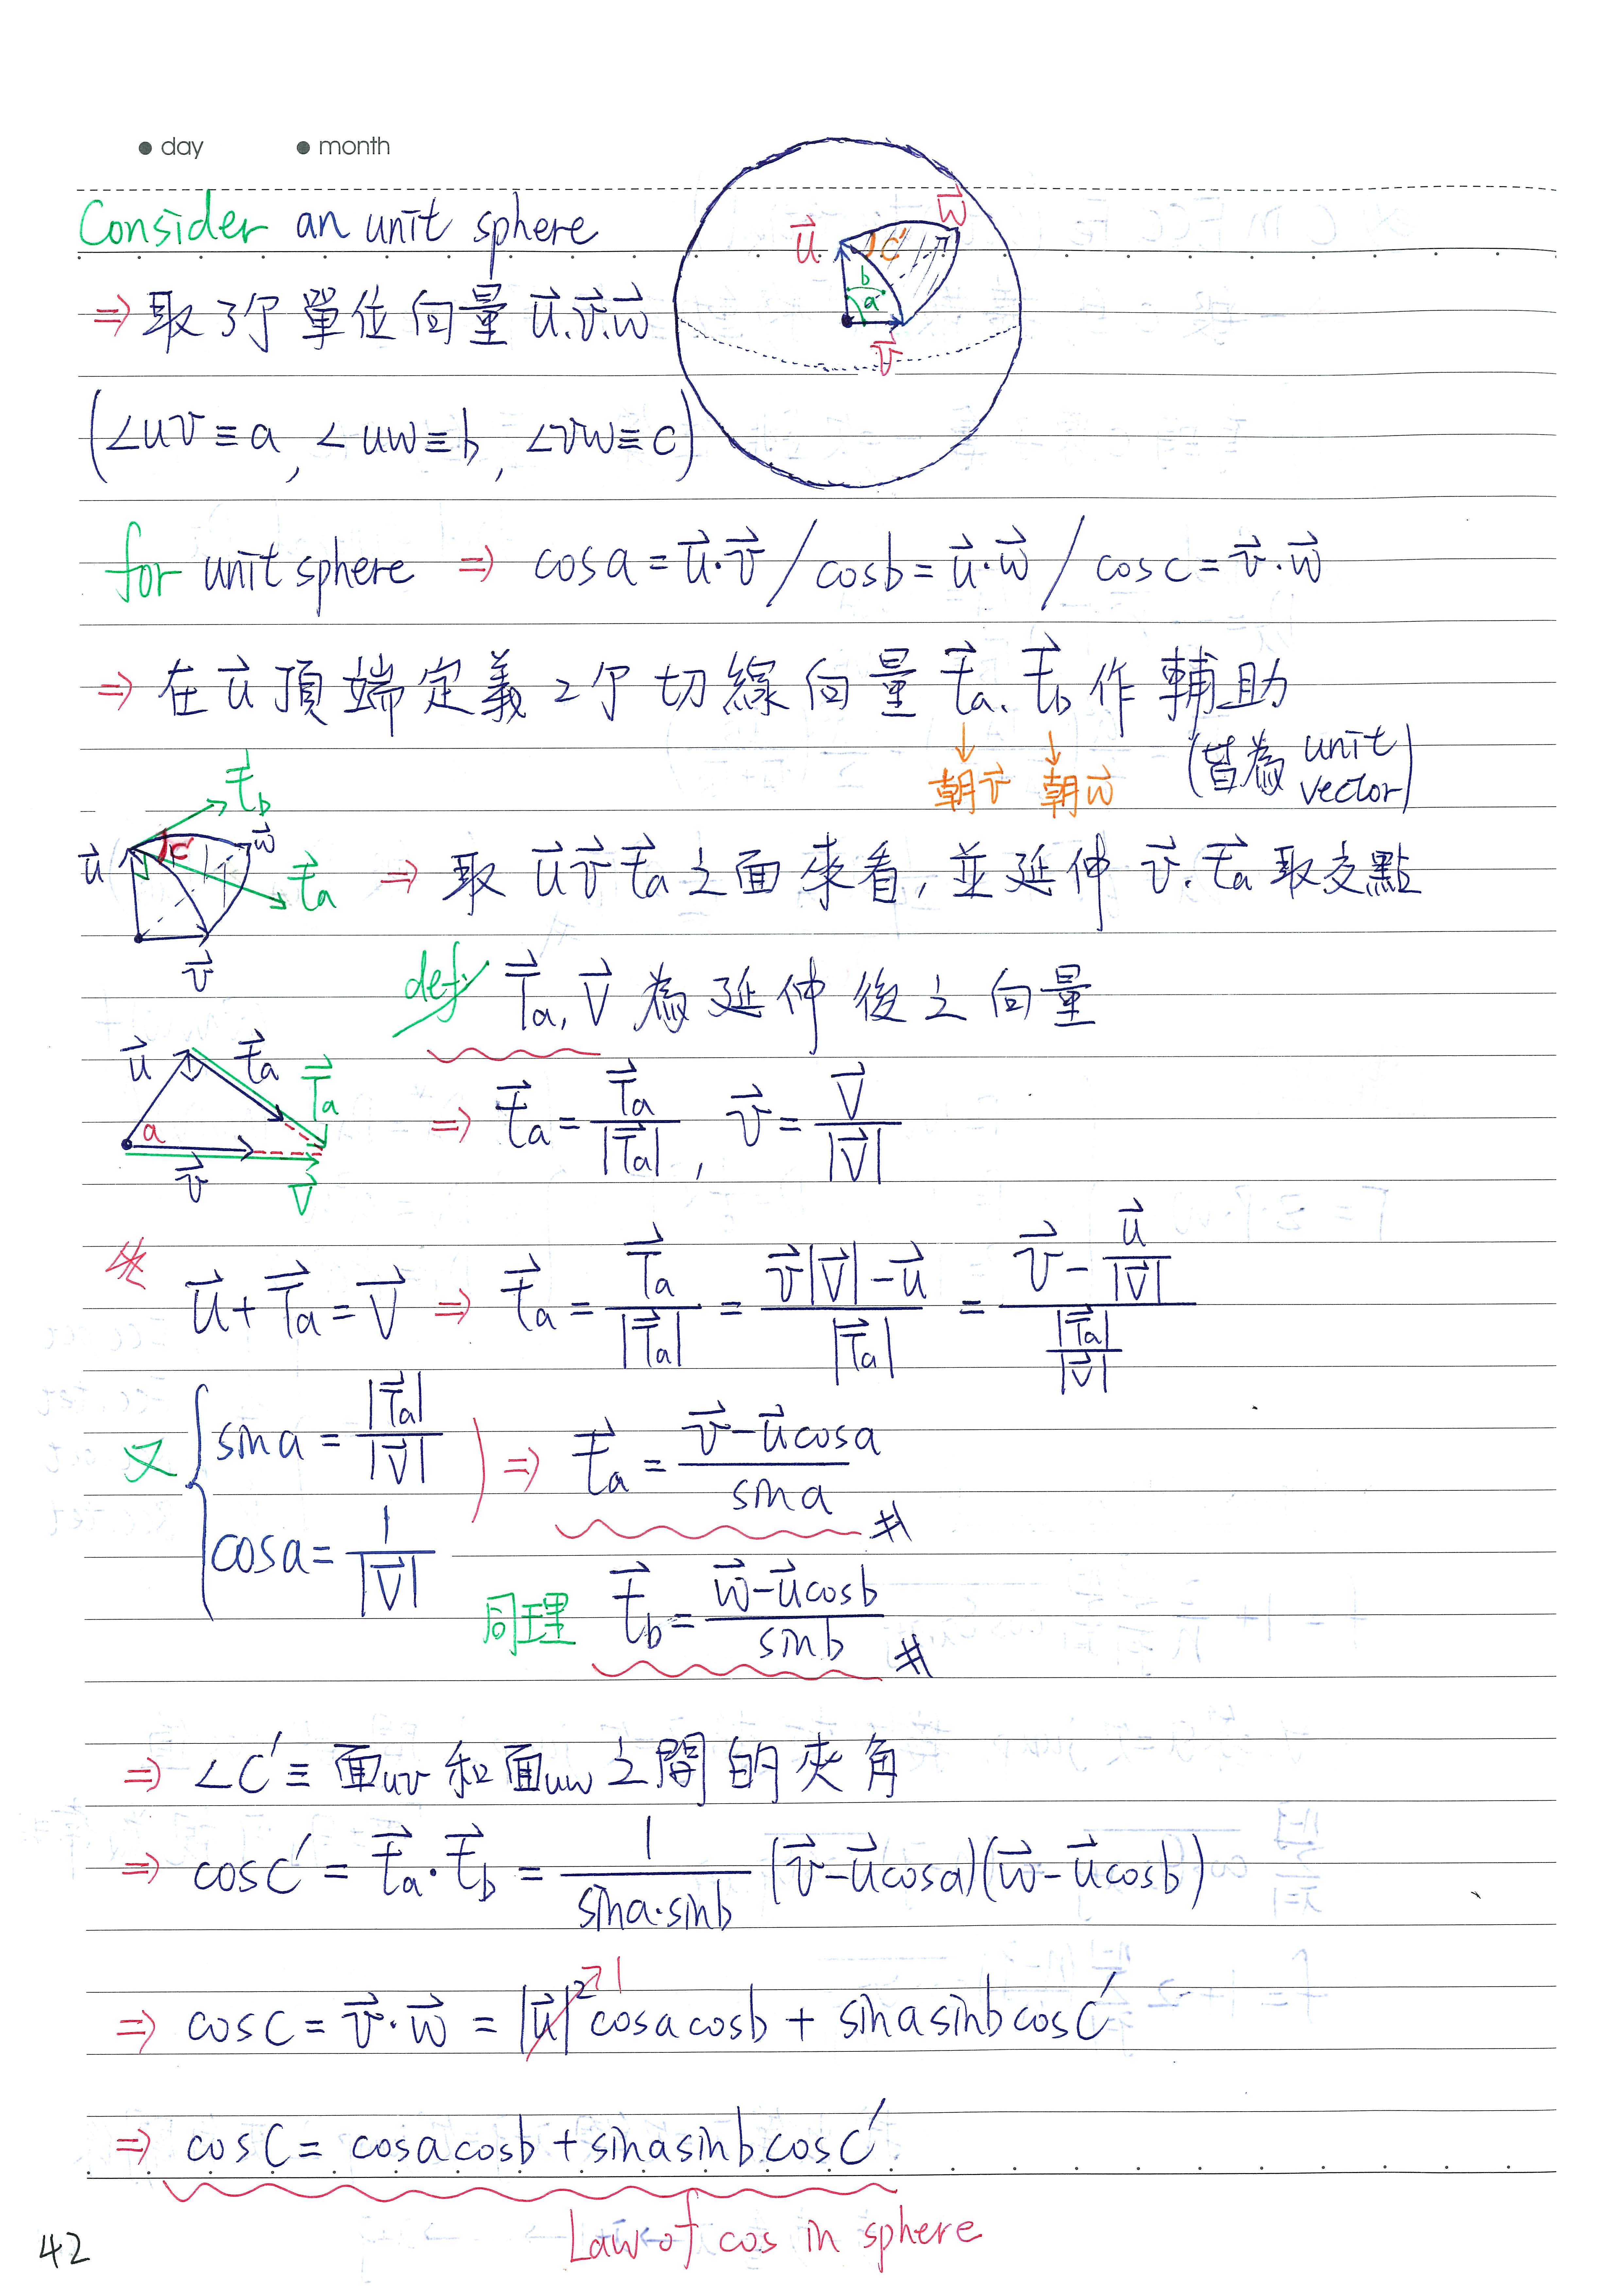 ● day ● month
Consider an unit sphere
⇒ 取3个單位向量 u⃗.v⃗.w⃗
(∠uv ≡ a, ∠uw ≡ b, ∠vw ≡ c)
u⃗ w⃗ c' b a v⃗
for unit sphere ⇒ cosa = u⃗·v⃗ / cosb = u⃗·w⃗ / cosc = v⃗·w⃗
⇒ 在u⃗頂端定義2个切線向量 t⃗a、t⃗b 作輔助
↓朝v⃗ ↓朝w⃗ (皆為 unit vector)
t⃗b u⃗ c' w⃗ t⃗a v⃗
⇒ 取 u⃗ v⃗ t⃗a 之面來看, 並延伸 v⃗.t⃗a 取交點
def T⃗a, V⃗ 為延伸後之向量
u⃗ t⃗a T⃗a a v⃗ V⃗
⇒ t⃗a = T⃗a/|T⃗a| , v⃗ = V⃗/|V⃗|
※ u⃗ + T⃗a = V⃗ ⇒ t⃗a = T⃗a/|T⃗a| = (v⃗|V⃗| - u⃗)/|T⃗a| = (v⃗ - u⃗/|V⃗|)/(|T⃗a|/|V⃗|)
又 { sina = |T⃗a|/|V⃗| ) ⇒ t⃗a = (v⃗ - u⃗cosa)/sina #
cosa = 1/|V⃗|
同理 t⃗b = (w⃗ - u⃗cosb)/sinb #
⇒ ∠C' ≡ 面uv 和面uw 之間的夾角
⇒ cosC' = t⃗a·t⃗b = 1/(sina·sinb) (v⃗ - u⃗cosa)(w⃗ - u⃗cosb)
⇒ cosC = v⃗·w⃗ = |u⃗|²↗1 cosacosb + sinasinbcosC'
⇒ cosC = cosacosb + sinasinbcosC'
Law of cos in sphere
42